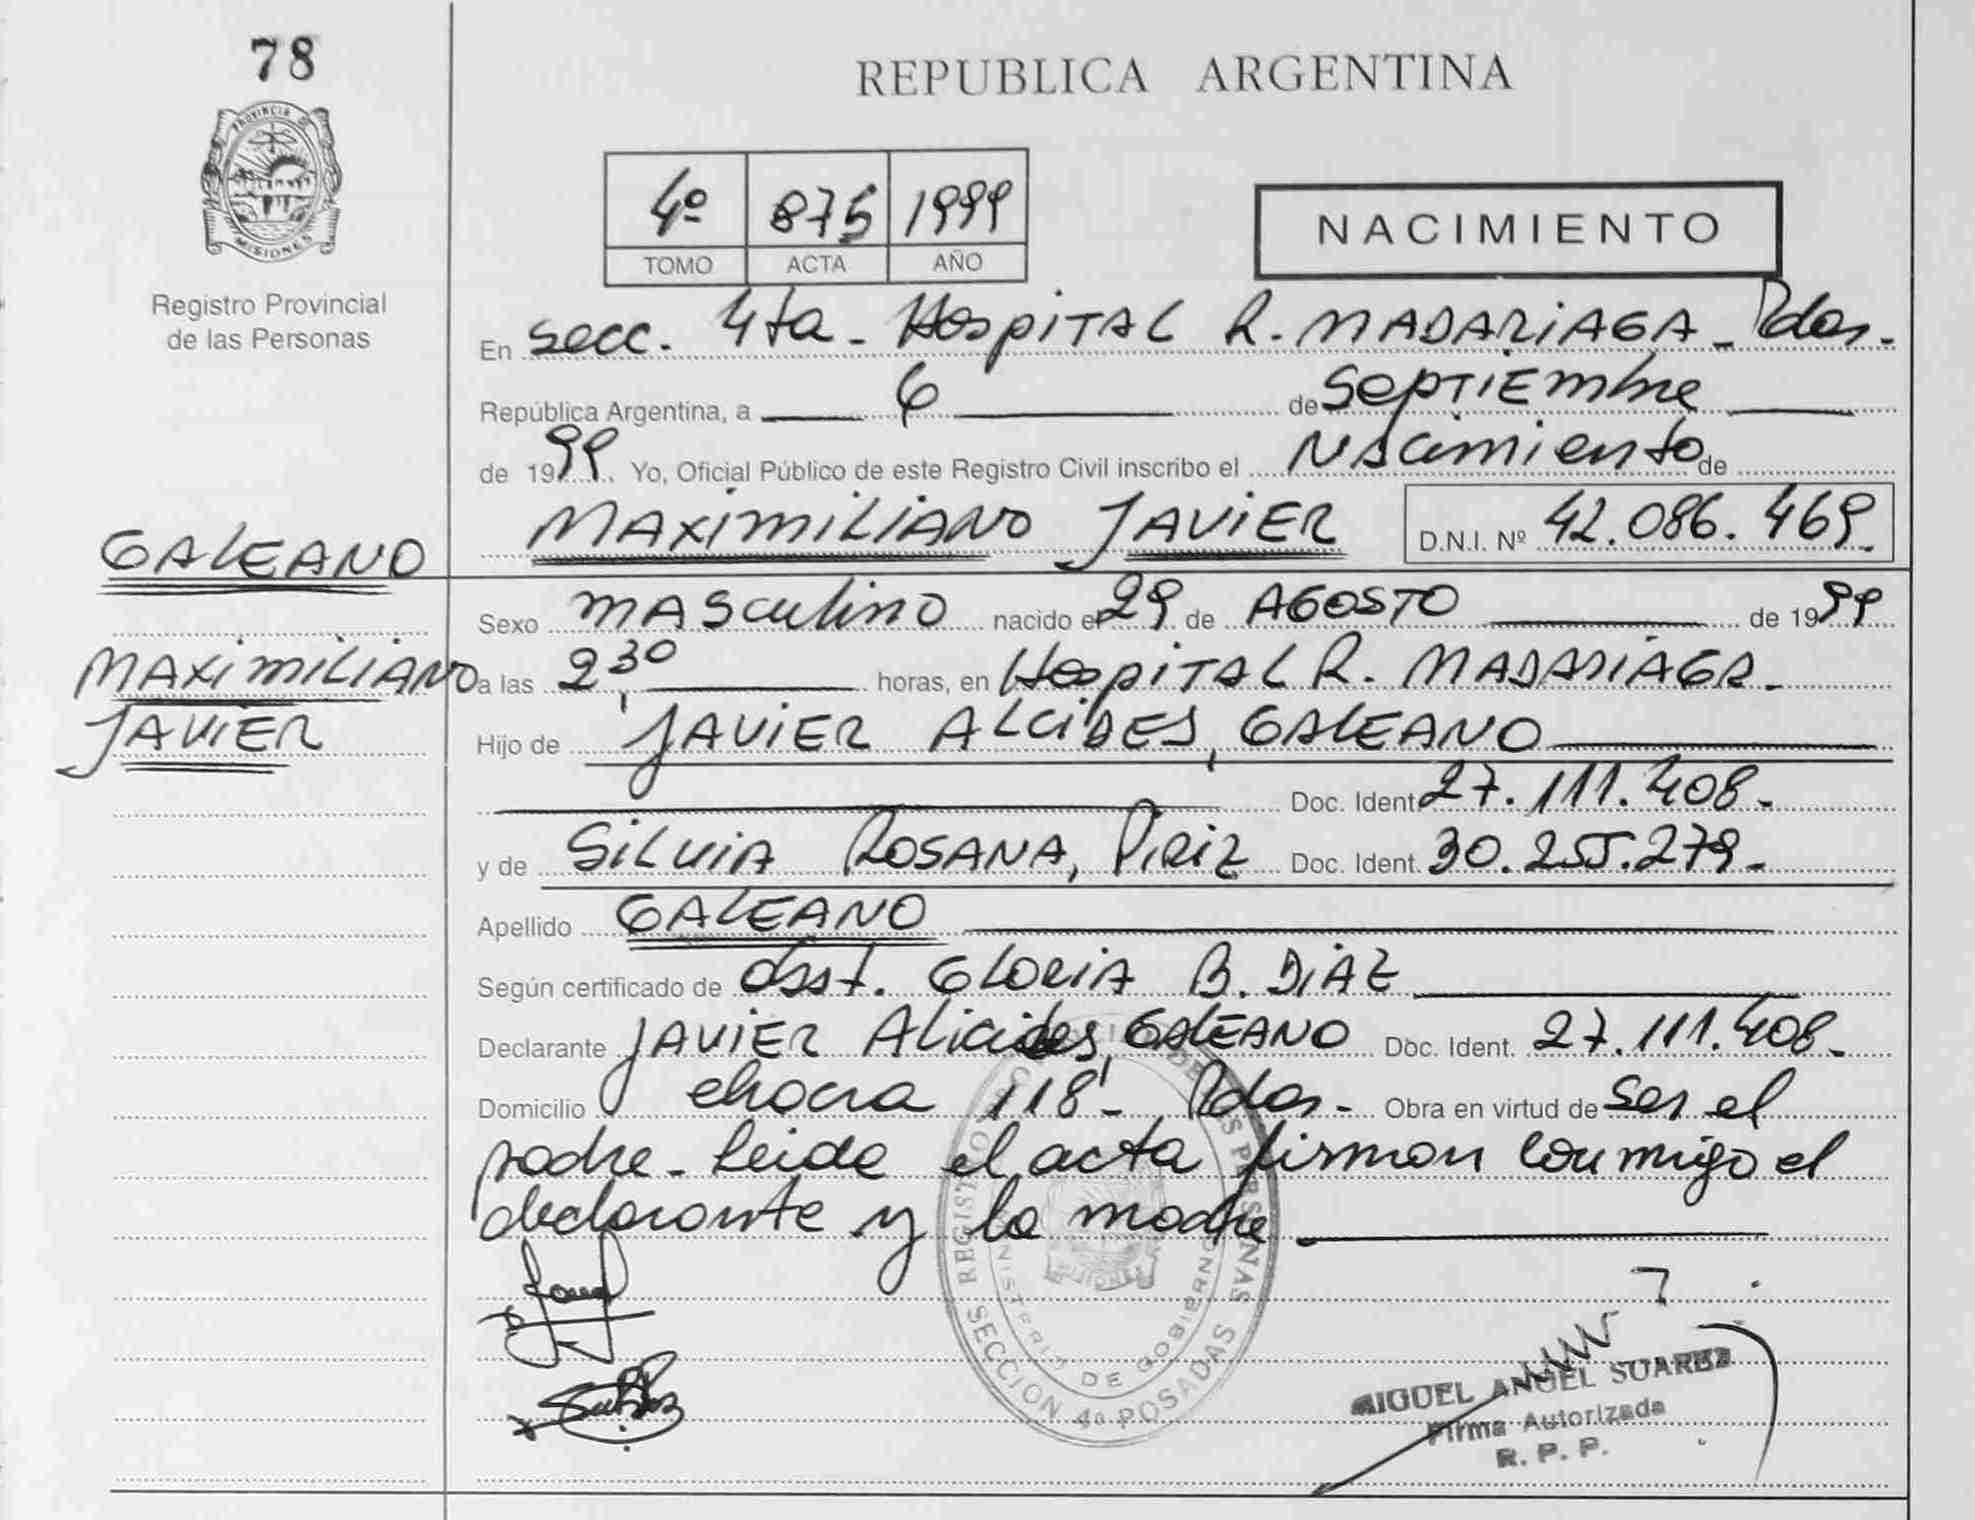 78
PROVINCIA DE
MISIONES
Registro Provincial
de las Personas
REPUBLICA ARGENTINA
4º 875 1999
TOMO ACTA AÑO
NACIMIENTO
En secc. 4ta - Hospital R. MADARIAGA - Pdas.
República Argentina, a 6 de Septiembre
de 1999 Yo, Oficial Público de este Registro Civil inscribo el Nacimiento de
MAXIMILIANO JAVIER D.N.I. Nº 42.086.469.
GALEANO
MAXIMILIANO
JAVIER
Sexo masculino nacido el 29 de AGOSTO de 1999
a las 2,30 horas, en Hospital R. MADARIAGA -
Hijo de JAVIER ALCIDES, GALEANO
Doc. Ident. 27.111.408.-
y de SILVIA ROSANA, PIRIZ Doc. Ident. 30.255.279.-
Apellido GALEANO
Según certificado de Obst. GLORIA B. DIAZ
Declarante JAVIER Alicides, GALEANO Doc. Ident. 27.111.408.-
Domicilio chacra 118 - Pdas - Obra en virtud de ser el
padre - Leida el acta firman conmigo el
declarante y la madre
REGISTRO PROVINCIAL DE LAS PERSONAS
MINISTERIO DE GOBIERNO
SECCION 4a POSADAS
MIGUEL ANGEL SUAREZ
Firma Autorizada
R. P. P.